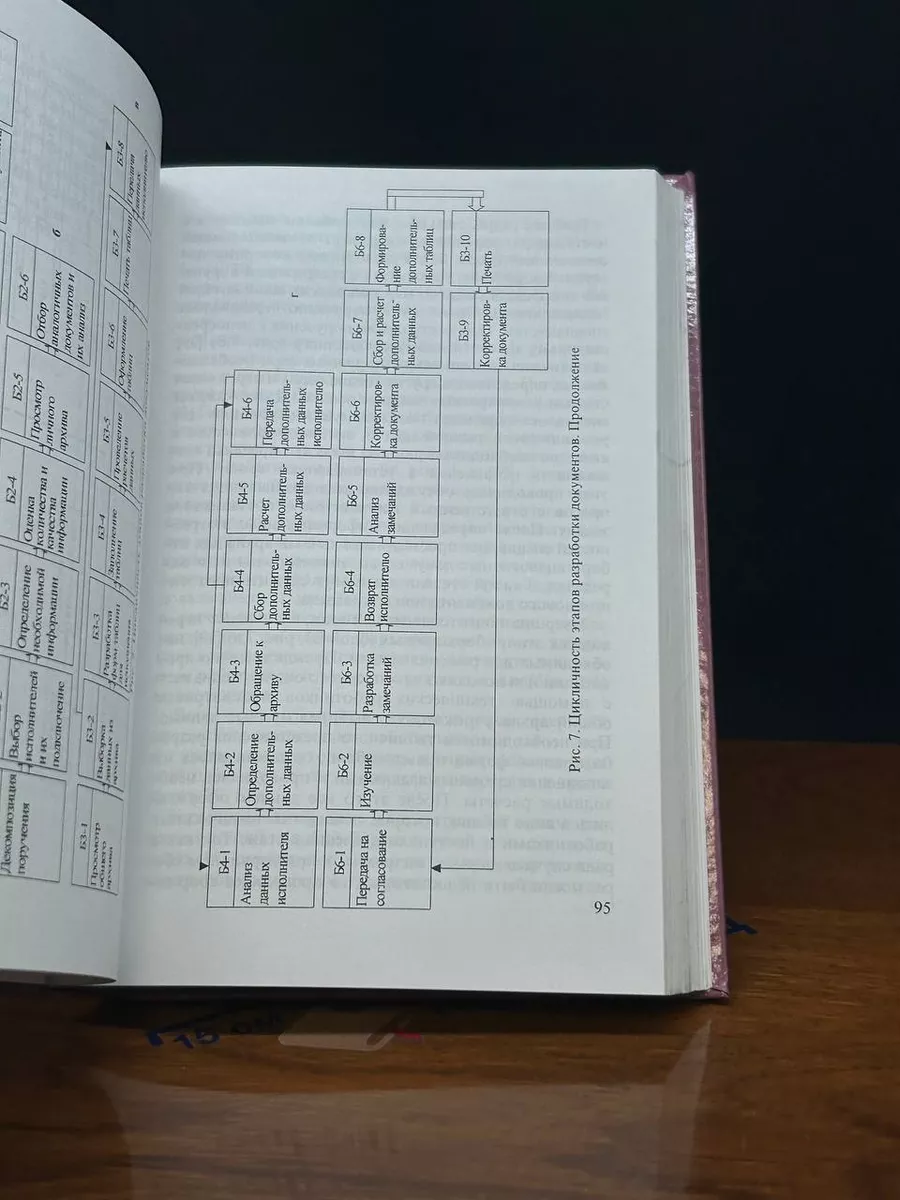 Б2-3
Определение
необходимой
информации
Б2-4
Оценка
количества и
качества
информации
Б2-5
Просмотр
личного
архива
Б2-6
Отбор
аналогичных
документов и
их анализ
б
Декомпозиция
поручения
Выбор
исполнителей
и их
подключение
Б3-1
Просмотр
общего
архива
Б3-2
Выборка
данных из
архива
Б3-3
Разработка
форм таблиц
для
Б3-4
Заполнение
таблиц
Б3-5
Проведение
расчетов
данных
Б3-6
Оформление
таблиц
Б3-7
Печать таблиц
Б3-8
Передача
данных
исполнителю
в
г
Б4-1
Анализ
данных
исполнителя
Б4-2
Определение
дополнитель-
ных данных
Б4-3
Обращение к
архиву
Б4-4
Сбор
дополнитель-
ных данных
Б4-5
Расчет
дополнитель-
ных данных
Б4-6
Передача
дополнитель-
ных данных
исполнителю
Б6-1
Передача на
согласование
Б6-2
Изучение
Б6-3
Разработка
замечаний
Б6-4
Возврат
исполнителю
Б6-5
Анализ
замечаний
Б6-6
Корректиров-
ка документа
Б6-7
Сбор и расчет
дополнитель-
ных данных
Б6-8
Формирова-
ние
дополнитель-
ных таблиц
Б3-9
Корректиров-
ка документа
Б3-10
Печать
Рис. 7. Цикличность этапов разработки документов. Продолжение
95
15 см